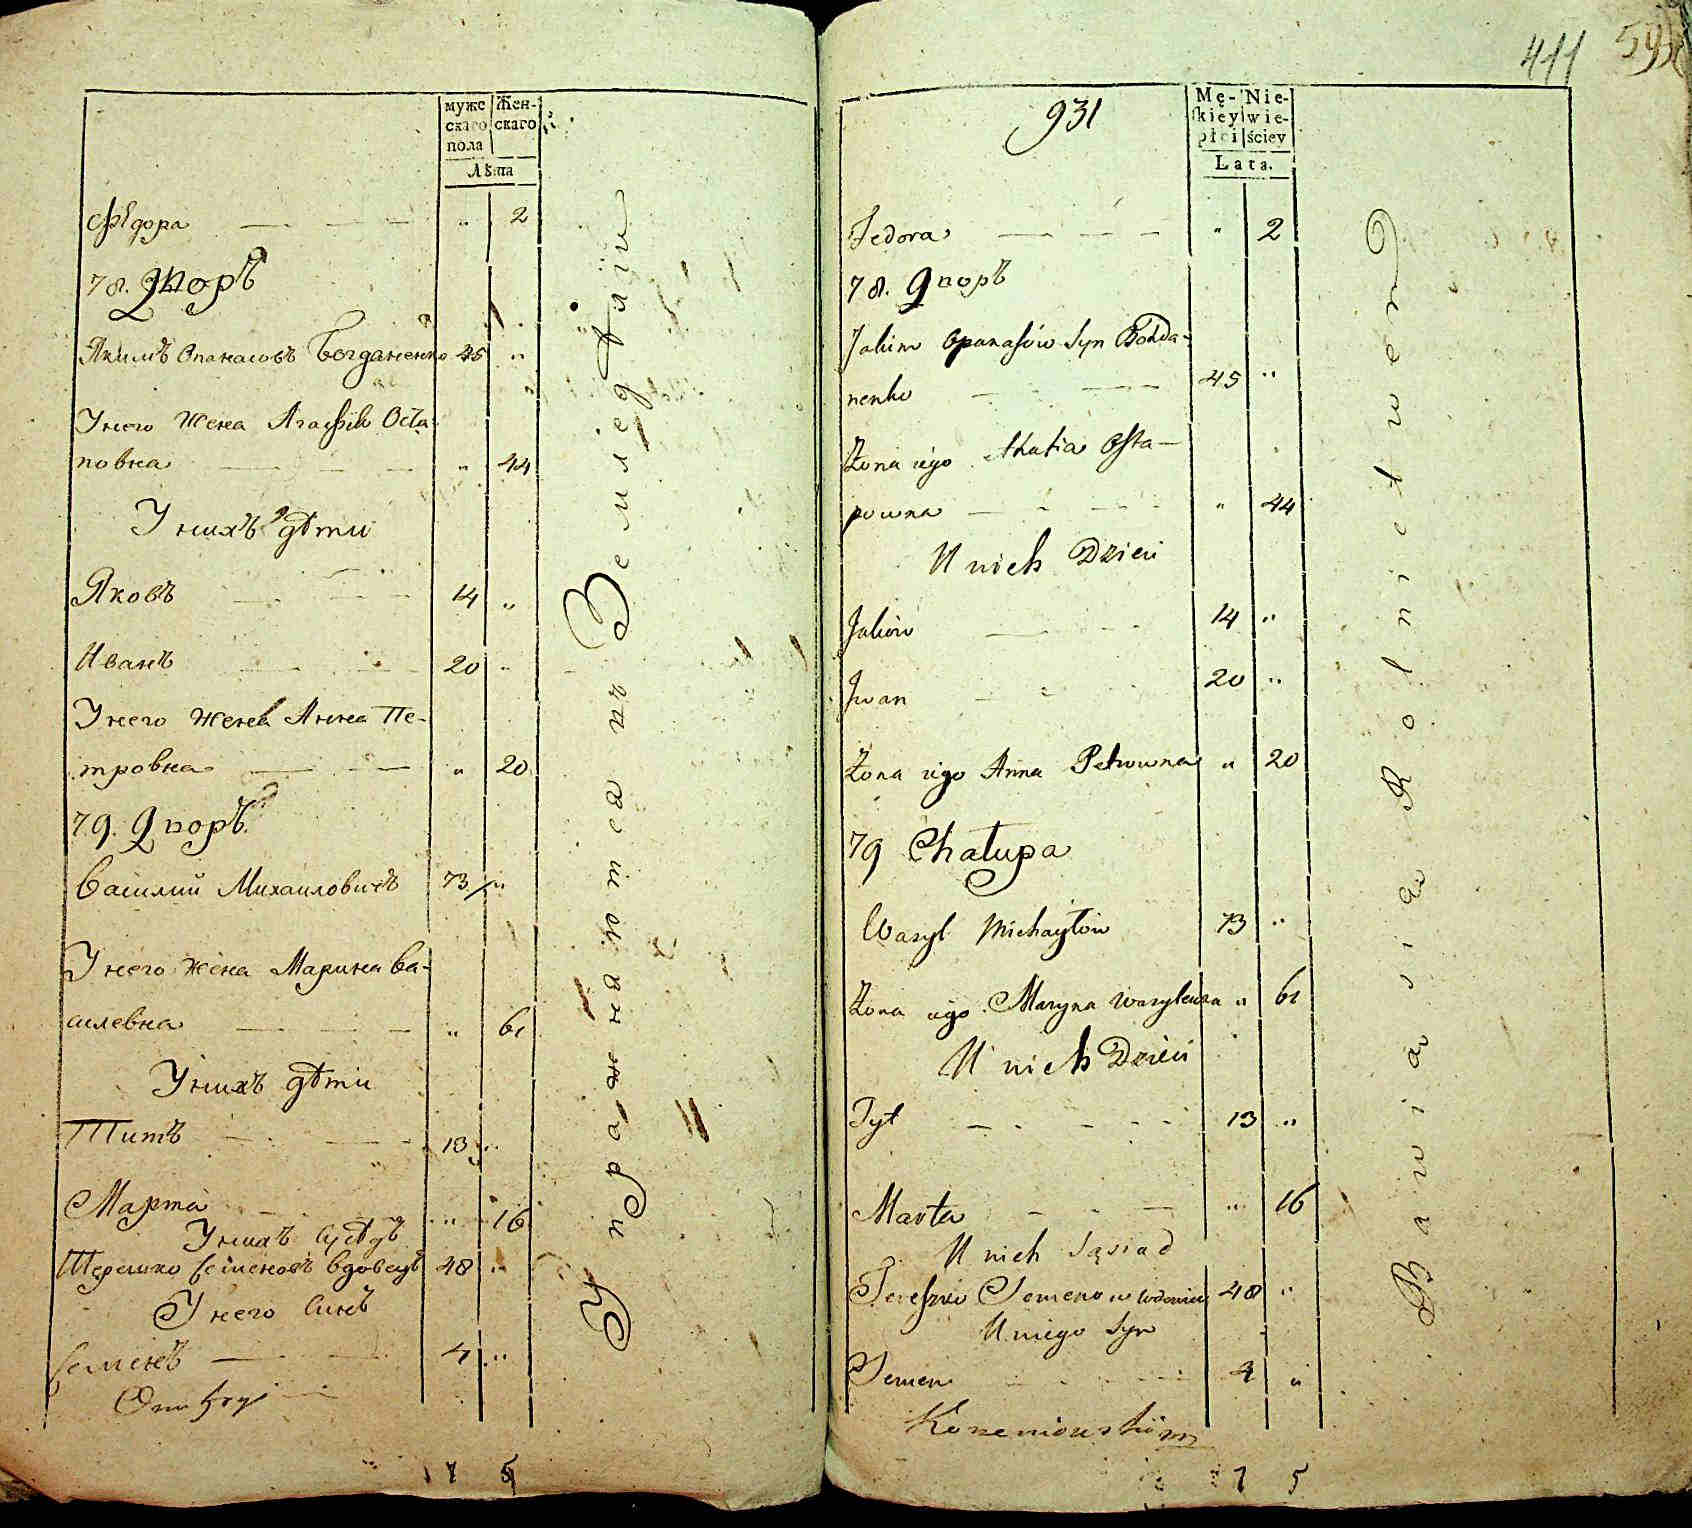 муже
скаго
пола
Жен-
скаго
Лѣта
Ѳедора " 2
78. Дворъ
Якимъ Опанасовъ Богданенко 45 "
У него жена Агафія Оста-
повна " 44
У нихъ дѣти
Яковъ 14 "
Иванъ 20 "
У него жена Анна Пе-
тровна " 20
79. Дворъ
Василий Михаиловичъ 73 "
У него жена Марина Ва-
силевна " 61
У нихъ дѣти
Титъ 13 "
Марта " 16
У нихъ сусѣдъ
Терешко Семеновъ вдовецъ 48 "
У него синъ
Семенъ 4 "
7 5
Упражняются въ Земледѣлiи
411
931
Mę-
skiey
płci
Nie-
wie-
ściey
Lata.
Fedora " 2
78. Дворъ
Jakim Opanasów Syn Bohda-
nenko 45 "
Żona iego Ahafia Osta-
powna " 44
U nich Dzieci
Jakow 14 "
Jwan 20 "
Żona iego Anna Petrowna " 20
79 Chałupa
Wasyl Michayłow 73 "
Żona iego Maryna Wasylewna " 61
U nich Dzieci
Tyt 13 "
Marta " 16
U nich Sąsiad
Tereszko Semenow wdowiec 48 "
U niego Syn
Semen 4 "
7 5
Bawią się Rolnictwem